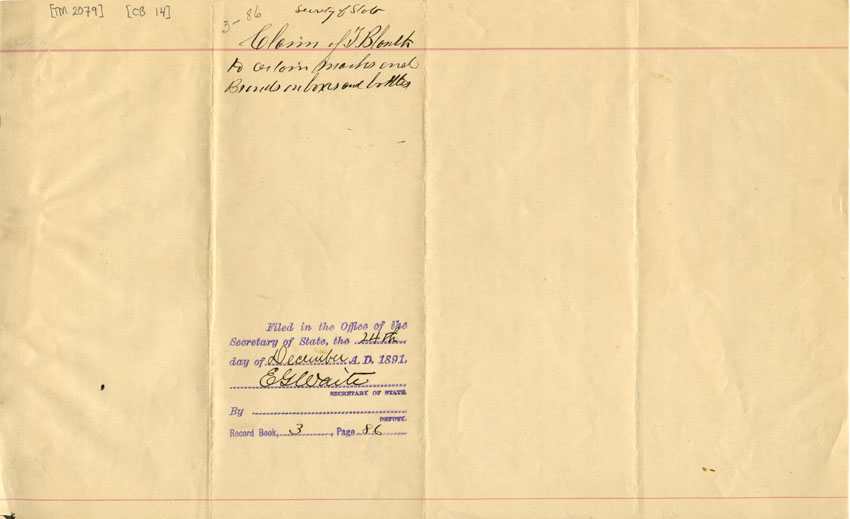 [TM 2079] [CB 14]
3-86
Secrety of State
Claim of J Blauth
to certain marks and
Brands on boxes and bottles
Filed in the Office of the
Secretary of State, the 24th
day of December A. D. 1891.
E G Waite
SECRETARY OF STATE.
By
DEPUTY.
Record Book, 3, Page 86